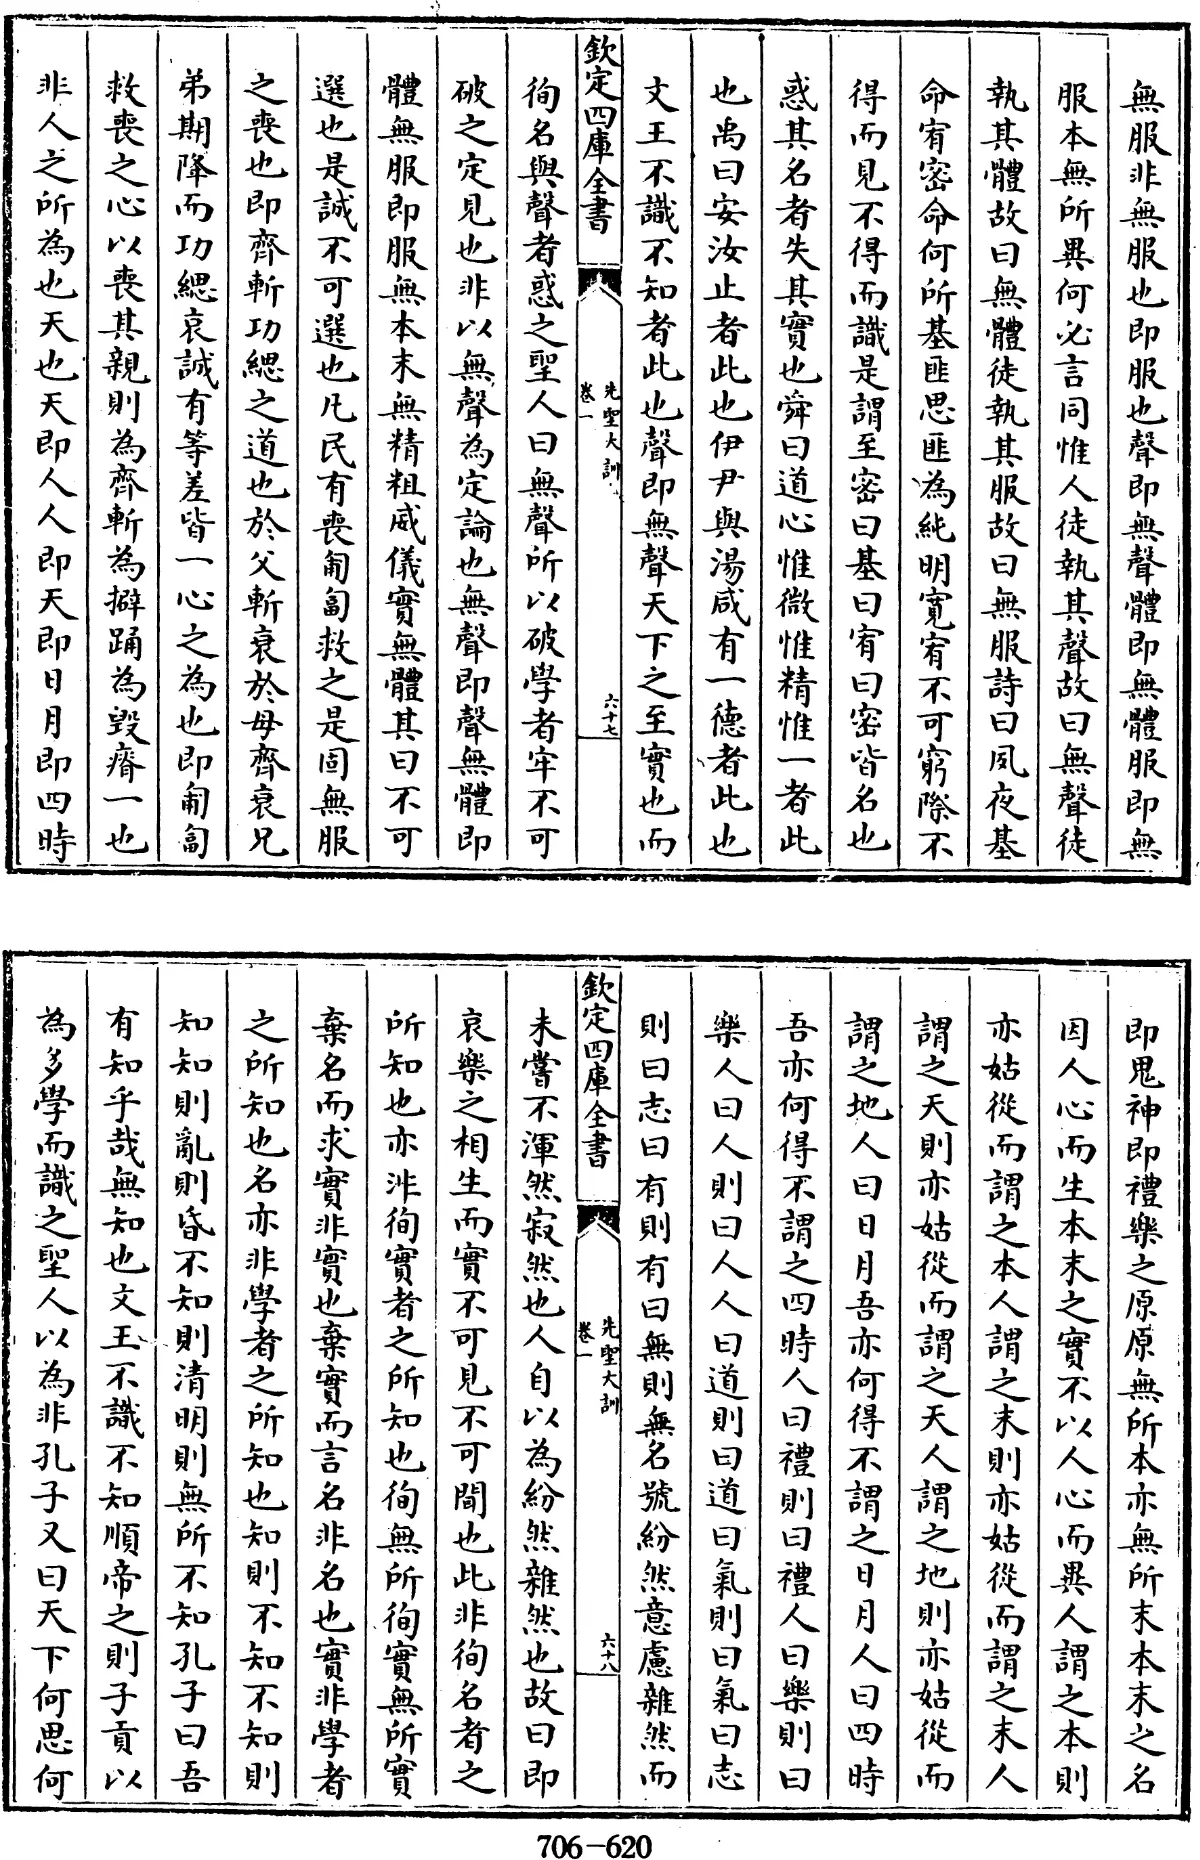 無服非無服也即服也聲即無聲體即無體服即無
服本無所異何必言同惟人徒執其聲故曰無聲徒
執其體故曰無體徒執其服故曰無服詩曰夙夜基
命宥密命何所基匪思匪為純明寛宥不可窮際不
得而見不得而識是謂至密曰基曰宥曰密皆名也
惑其名者失其實也舜曰道心惟微惟精惟一者此
也禹曰安汝止者此也伊尹與湯咸有一德者此也
文王不識不知者此也聲即無聲天下之至實也而
欽定四庫全書
先聖大訓
卷一
六十七
徇名與聲者惑之聖人曰無聲所以破學者牢不可
破之定見也非以無聲為定論也無聲即聲無體即
體無服即服無本末無精粗威儀實無體其曰不可
選也是誠不可選也凡民有喪匍匐救之是固無服
之喪也即齊斬功緦之道也於父斬衰於母齊衰兄
弟期降而功緦哀誠有等差皆一心之為也即匍匐
救喪之心以喪其親則為齊斬為擗踊為毀瘠一也
非人之所為也天也天即人人即天即日月即四時
即鬼神即禮樂之原原無所本亦無所末本末之名
因人心而生本末之實不以人心而異人謂之本則
亦姑從而謂之本人謂之末則亦姑從而謂之末人
謂之天則亦姑從而謂之天人謂之地則亦姑從而
謂之地人曰日月吾亦何得不謂之日月人曰四時
吾亦何得不謂之四時人曰禮則曰禮人曰樂則曰
樂人曰人則曰人人曰道則曰道曰氣則曰氣曰志
則曰志曰有則有曰無則無名號紛然意慮雜然而
欽定四庫全書
先聖大訓
卷一
六十八
未嘗不渾然寂然也人自以為紛然雜然也故曰即
哀樂之相生而實不可見不可聞也此非徇名者之
所知也亦非徇實者之所知也徇無所徇實無所實
棄名而求實非實也棄實而言名非名也實非學者
之所知也名亦非學者之所知也知則不知不知則
知知則亂則昏不知則清明則無所不知孔子曰吾
有知乎哉無知也文王不識不知順帝之則子貢以
為多學而識之聖人以為非孔子又曰天下何思何
706-620